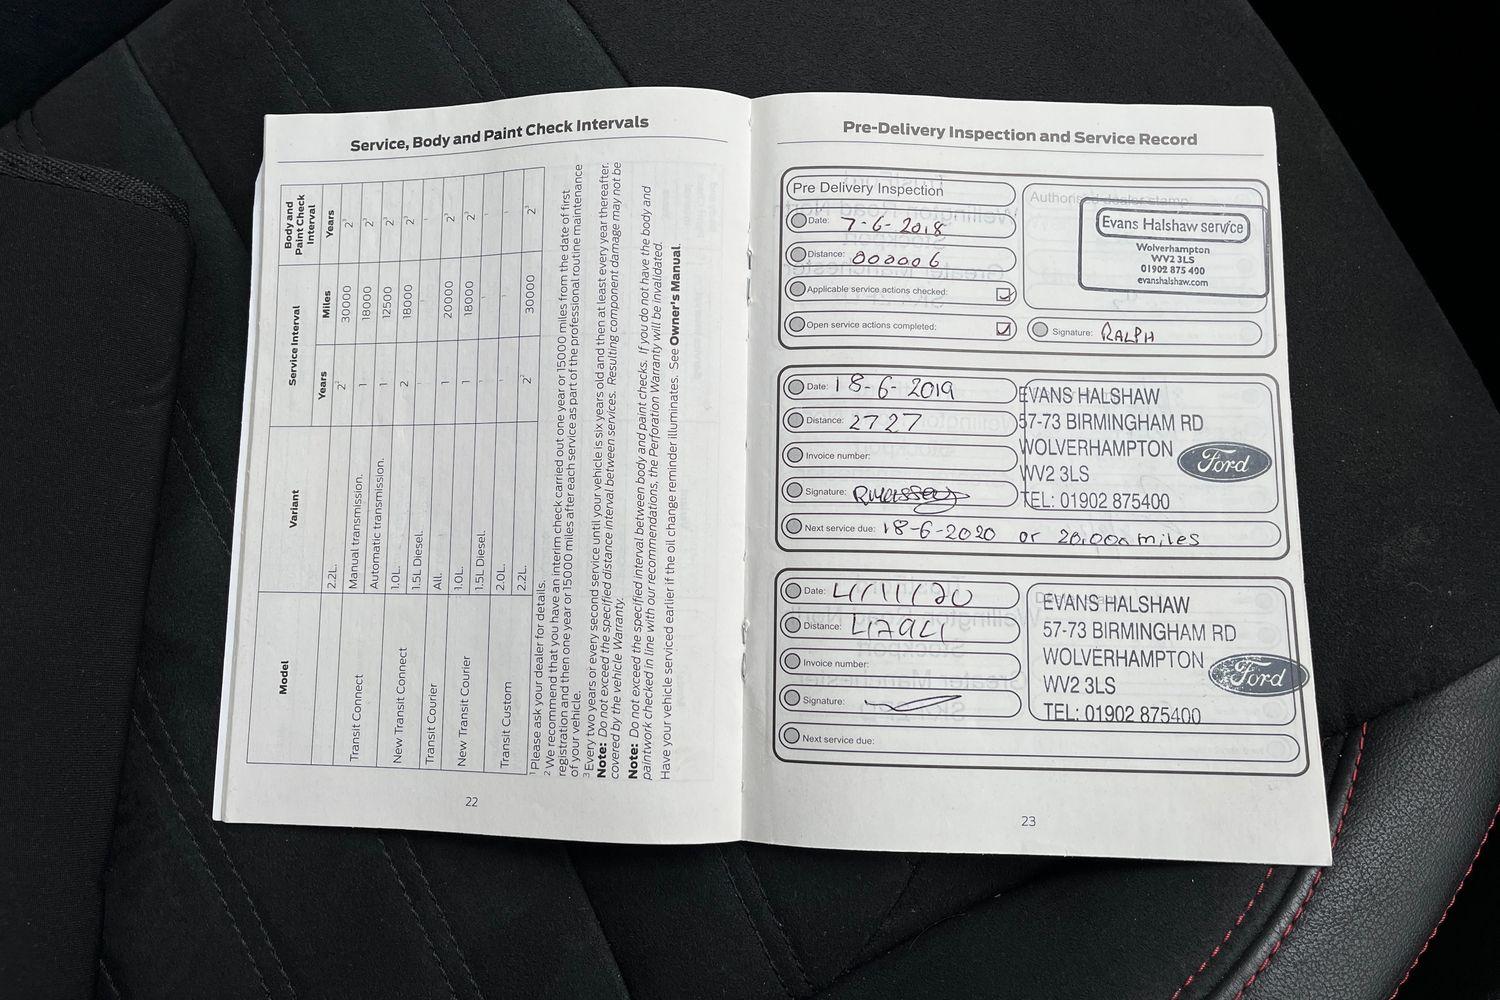 Service, Body and Paint Check Intervals
Model Variant Service Interval Body and Paint Check Interval
Years Miles Years
2.2L. 2² 30000 2³
Transit Connect Manual transmission. 1 18000 2³
Automatic transmission. 1 12500 2³
New Transit Connect 1.0L. 2 18000 2³
1.5L Diesel. - - -
Transit Courier All. 1 20000 2³
New Transit Courier 1.0L. 1 18000 2³
1.5L Diesel. - - -
Transit Custom 2.0L. - - -
2.2L. 2² 30000 2³
¹ Please ask your dealer for details.
² We recommend that you have an interim check carried out one year or 15000 miles from the date of first
registration and then one year or 15000 miles after each service as part of the professional routine maintenance
of your vehicle.
³ Every two years or every second service until your vehicle is six years old and then at least every year thereafter.
Note: Do not exceed the specified distance interval between services. Resulting component damage may not be
covered by the vehicle Warranty.
Note: Do not exceed the specified interval between body and paint checks. If you do not have the body and
paintwork checked in line with our recommendations, the Perforation Warranty will be invalidated.
Have your vehicle serviced earlier if the oil change reminder illuminates. See Owner's Manual.
22
Pre-Delivery Inspection and Service Record
Pre Delivery Inspection
Date: 7-6-2018
Distance: 000006
Applicable service actions checked:
Open service actions completed:
Authorised dealer stamp
Evans Halshaw service
Wolverhampton
WV2 3LS
01902 875 400
evanshalshaw.com
Signature: RALPH
Date: 18-6-2019
Distance: 2727
Invoice number:
Signature:
Next service due: 18-6-2020 or 20,000 miles
EVANS HALSHAW
57-73 BIRMINGHAM RD
WOLVERHAMPTON
WV2 3LS
TEL: 01902 875400
Ford
Date: 4/11/20
Distance: 4794
Invoice number:
Signature:
Next service due:
EVANS HALSHAW
57-73 BIRMINGHAM RD
WOLVERHAMPTON
WV2 3LS
TEL: 01902 875400
Ford
23